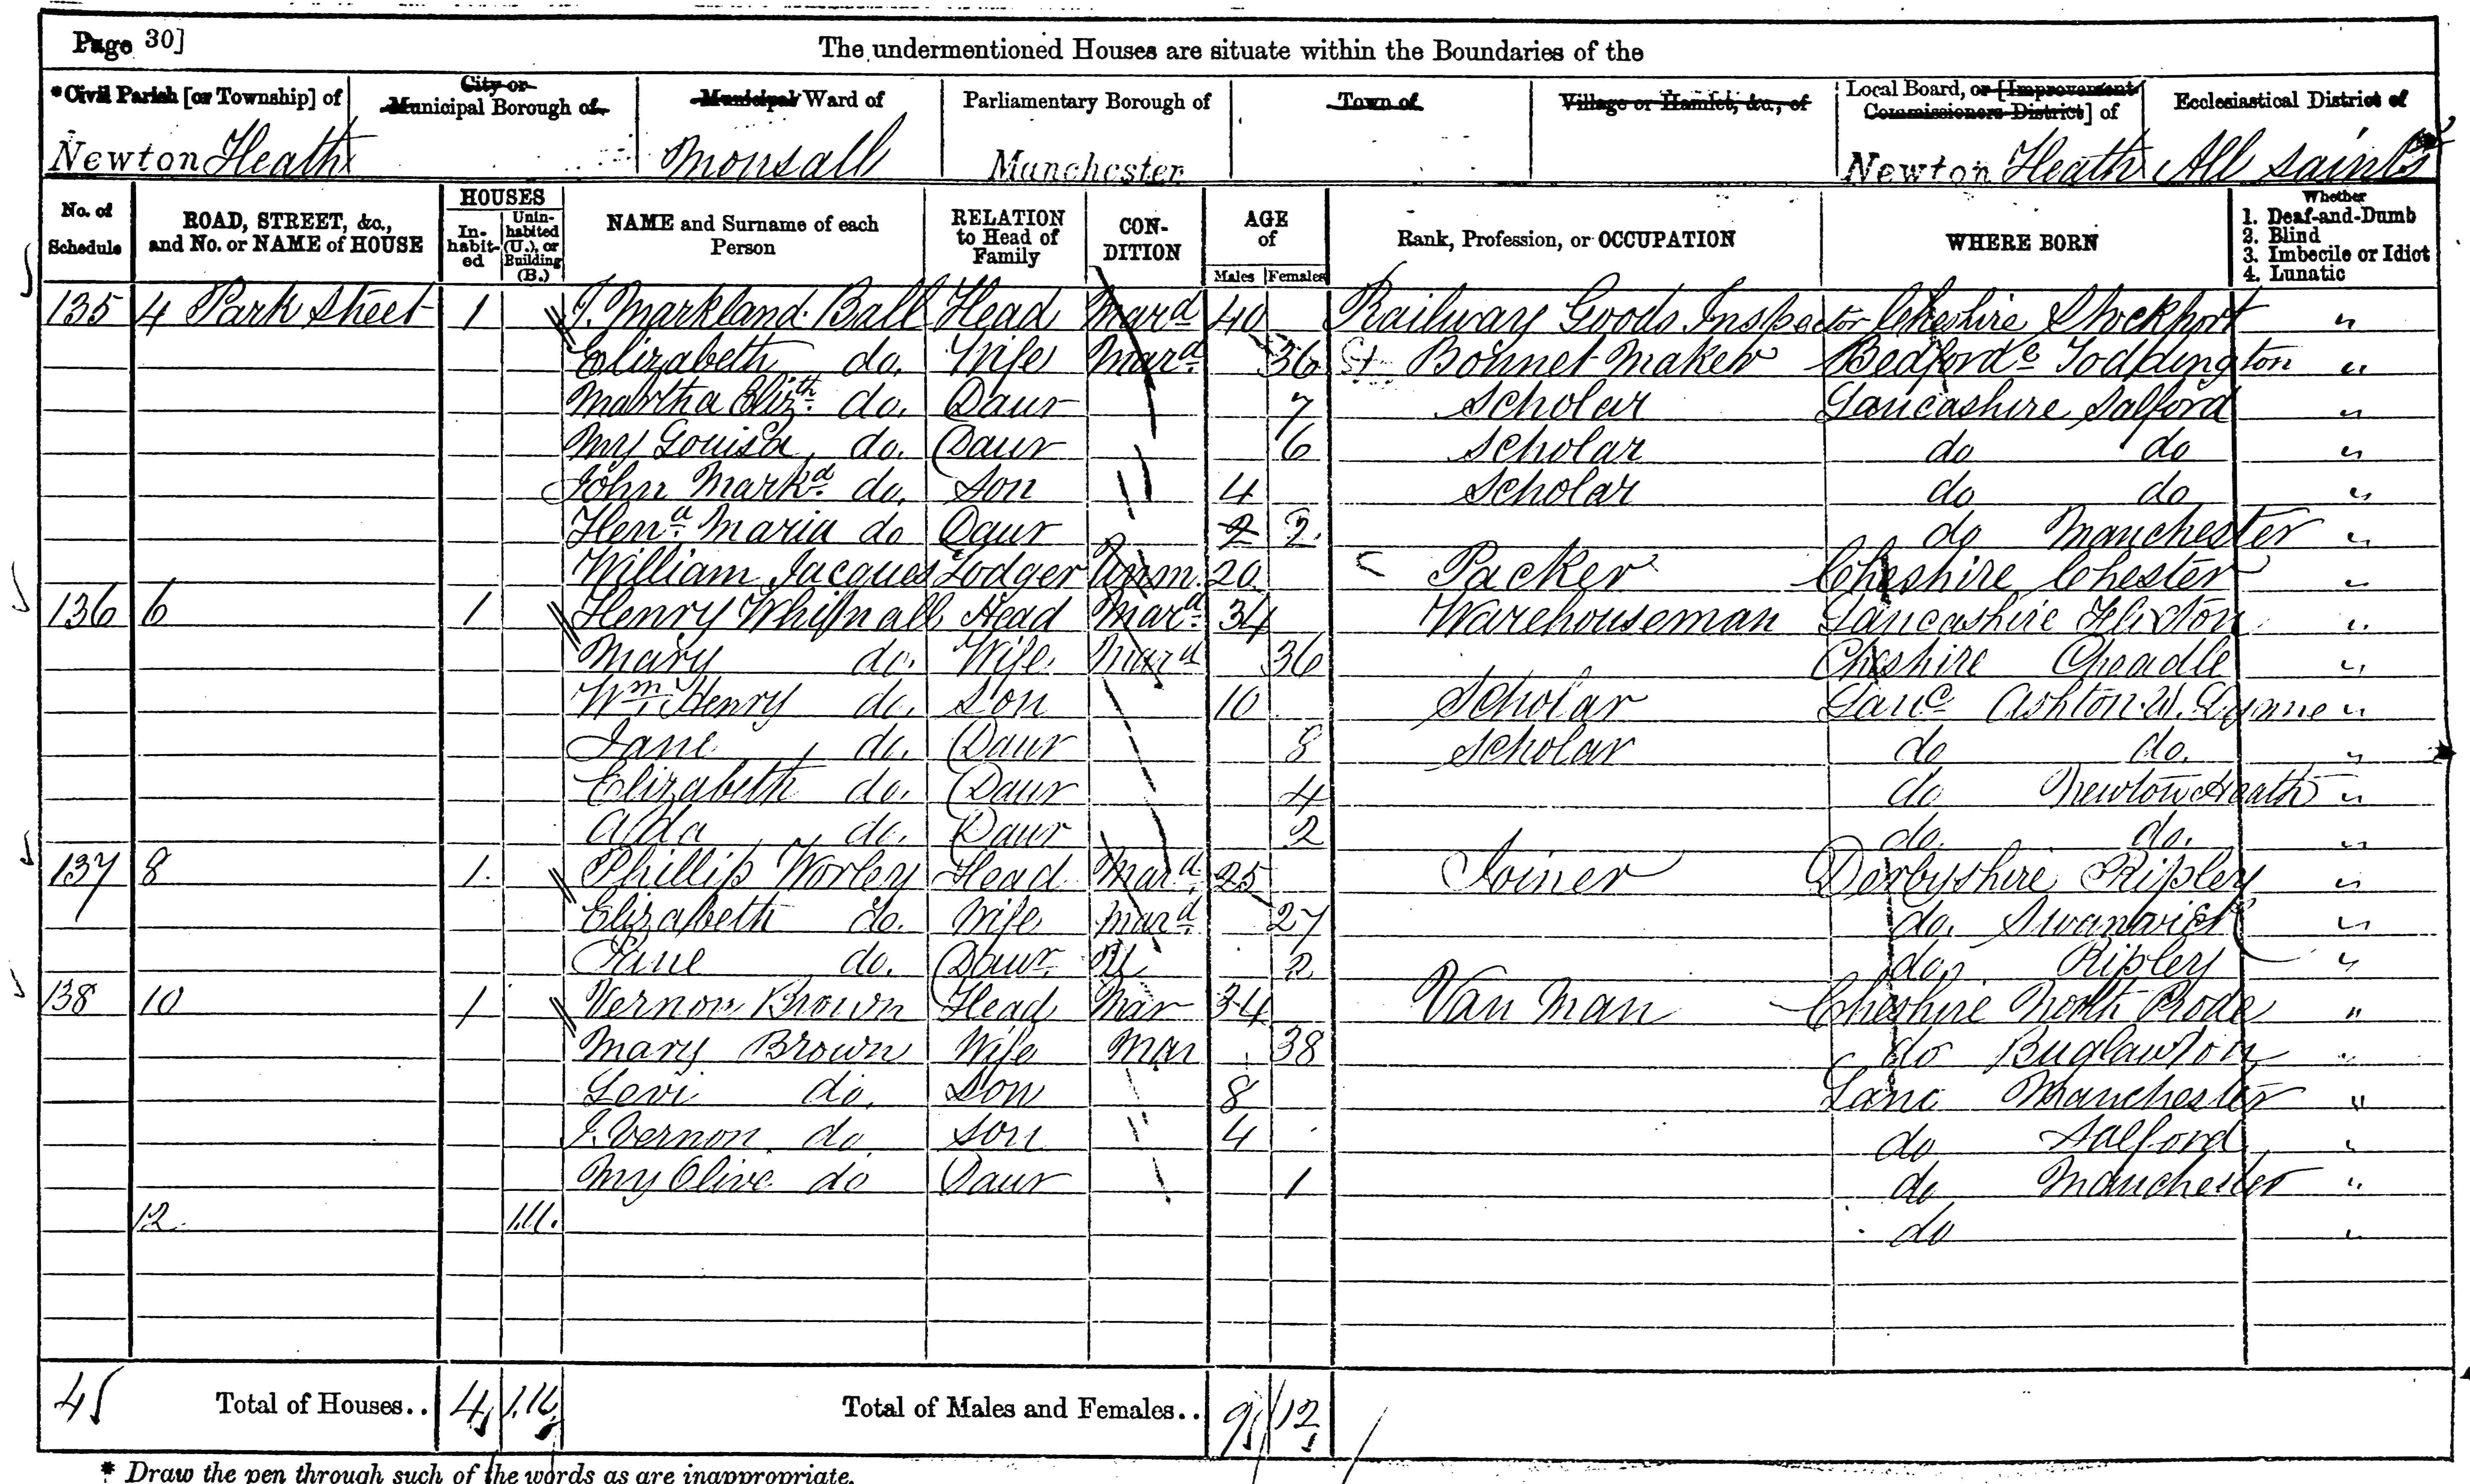 Page 30]
The undermentioned Houses are situate within the Boundaries of the
*Civil Parish [or Township] of City or Municipal Borough of Municipal Ward of Parliamentary Borough of Town of Village or Hamlet, &c., of Local Board, or [Improvement Commissioners District] of Ecclesiastical District of
Newton Heath Monsall Manchester Newton Heath All Saints
No. of Schedule ROAD, STREET, &c., and No. or NAME of HOUSE HOUSES Inhabited Uninhabited (U.), or Building (B.) NAME and Surname of each Person RELATION to Head of Family CONDITION AGE of Males Females Rank, Profession, or OCCUPATION WHERE BORN Whether 1. Deaf-and-Dumb 2. Blind 3. Imbecile or Idiot 4. Lunatic
135 4 Park Street 1 J. Markland Ball Head Mard 40 Railway Goods Inspector Cheshire Stockport "
Elizabeth do. Wife Mard 36 St Bonnet Maker Bedforde Toddington "
Martha Elizth do. Daur 7 Scholar Lancashire Salford "
My Louisa do. Daur 6 Scholar do do "
John Markd do. Son 4 Scholar do do "
Hena Maria do Daur 2 2 do Manchester "
William Jacques Lodger Unm. 20 Packer Cheshire Chester "
136 6 1 Henry Head Mard 34 Warehouseman Lancashire Flixton "
Mary do. Wife Mard 36 Cheshire Cheadle "
Wm Henry do. Son 10 Scholar Lanc Ashton U. Lynne "
Jane do. Daur 8 Scholar do do. "
Elizabeth do. Daur 4 do Newton Heath "
Ada do. Daur 2 do. do. "
137 8 1. Phillip Worley Head Mard 25 Joiner Derbyshire Ripley "
Elizabeth do. Wife Mard 27 do. Swanwick "
do. Daur U 2 do. Ripley "
138 10 1 Vernon Brown Head Mar 34 Van Man Cheshire North Rode "
Mary Brown Wife Mar 38 do Buglawton "
Levi do. Son 8 Lanc Manchester "
J. Vernon do Son 4 do Salford "
My Olive do Daur 1 do Manchester "
12 1.U. do "
45 Total of Houses.. 4 1.U. Total of Males and Females.. 9 12
* Draw the pen through such of the words as are inappropriate.